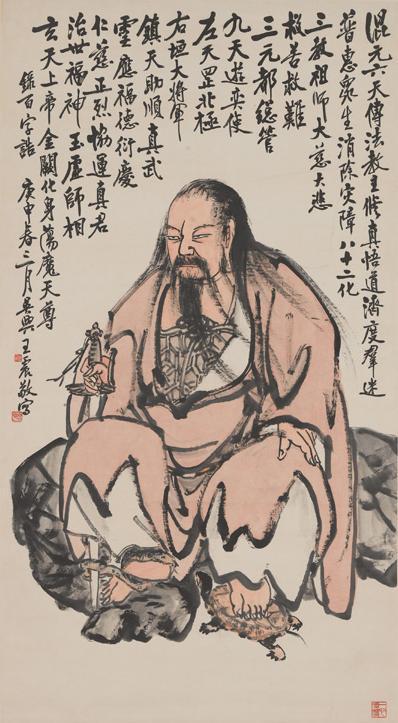 混元六天傳法教主修真悟道濟度羣迷
普惠衆生消除災障八十二化
三教祖师大慈大悲
救苦救難
三元都總管
九天遊奕使
左天罡北極
右垣大將軍
鎮天助順真武
靈應福德衍慶
仁慈正烈協運真君
治世福神玉虛師相
玄天上帝金闕化身蕩魔天尊
錄百字誥 庚申春三月吳興王震敬寫